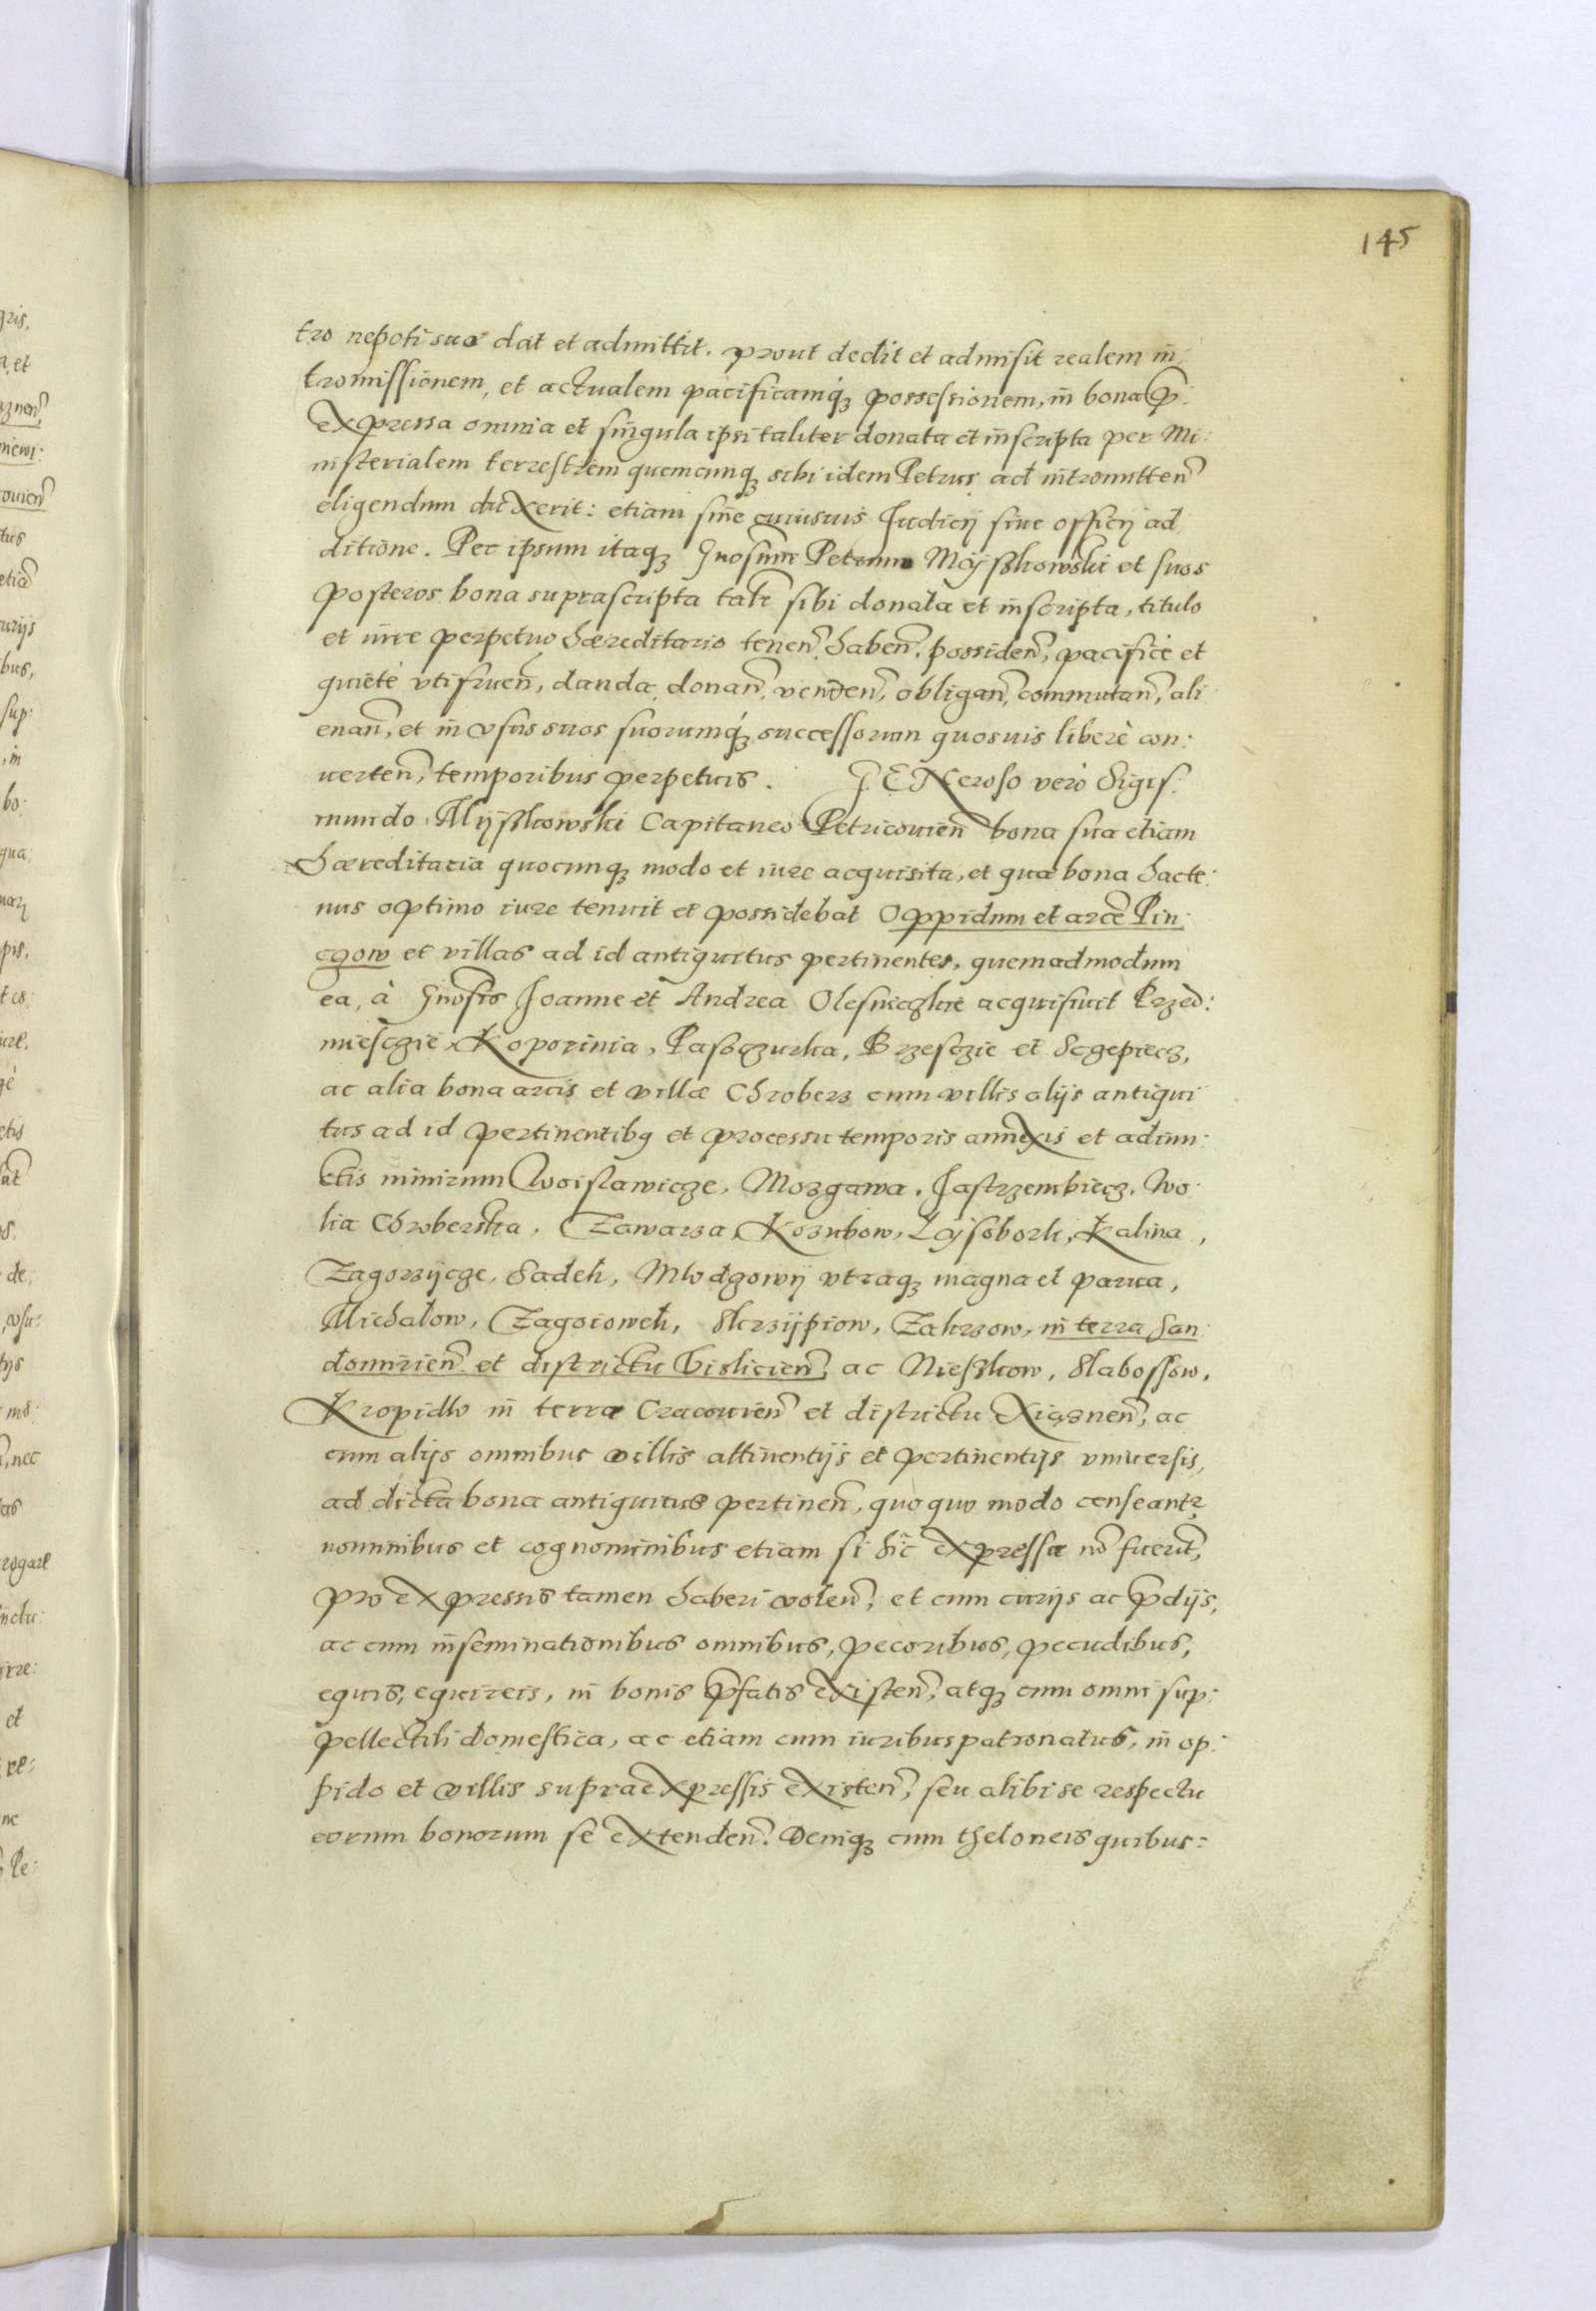 145
tro nepoti suo dat et admittit, prout dedit et admisit realem in:
tromissionem, et actualem pacificamq́ꝫ possessionem, in bona p̃:
expressa omnia et singula ipsi taliter donata et inscripta per Mi:
nisterialem terrestrem quemcunqꝫ sibi idem Petrus ad intromitten̄
eligendum duxerit: etiam sine cuiusuis Iudicij siue officij ad:
ditione. Per ipsum itaqꝫ Gnosum Petrum Myszkowski et suos
posteros bona suprascripta talr̃ sibi donata et inscripta, titulo
et iure perpetuo hæreditario tenen̄, haben̄, possiden̄, pacificè et
quietè vtifruen̄, danda, donan̄, venden̄, obligan̄, commutan̄, ali
enan̄, et in vsus suos suorumq́ꝫ successorum quosuis liberè con:
uerten̄, temporibus perpetuis. GENeroso verò Sigis:
mundo Myszkowski Capitaneo Petricouien̄ bona sua etiam
hæreditaria quocunqꝫ modo et iure acquisita, et quæ bona hacte:
nus optimo iure tenuit et possidebat Oppidum et arcē Pin:
czow et villas ad id antiquitus pertinentes, quemadmodum
ea, à Gnosis Joanne et Andrea Olesniczkie acquisiuit Przed:
miesczie, Koporinia, Pasoczurka, Brzesczie et Sczepiecz,
ac alia bona arcis et villæ Chroberz cum villis alijs antiqui
tus ad id pertinentibꝫ et processu temporis annexis et adiun:
ctis nimirum Woislawicze, Mozgawa, Jastrzembiecz, Wo:
lia Chroberska, Zawarza, Kozubow, Lysobork, Kalina,
Zagorzycze, Sadek, Mlodzowy vtraqꝫ magna et parua,
Michalow, Zagoiowek, Skrzypiow, Zakrzow, in terra San:
domirien̄ et districtu Vislicien̄, ac Nieszkow, Slabossow,
Kropidlo in terra Cracouien̄ et districtu Xiąznen̄, ac
cum alijs omnibus villis attinentijs et pertinentijs vniuersis,
ad dicta bona antiquitus pertinen̄, quo quo modo censeantr
nominibus et cognominibus etiam si hic expressæ nō fuerūt,
pro expressis tamen haberi volen̄, et cum curijs ac p̄dijs,
ac cum inseminationibus omnibus, pecoribus, pecudibus,
equis, equireis, in bonis p̄fatis existen̄, atqꝫ cum omni sup:
pellectili domestica, ac etiam cum iuribus patronatus, in op:
pido et villis supraexpressis existen̄, seu alibi se respectu
eorum bonorum se extenden̄. Deniqꝫ cum theloneis quibus: